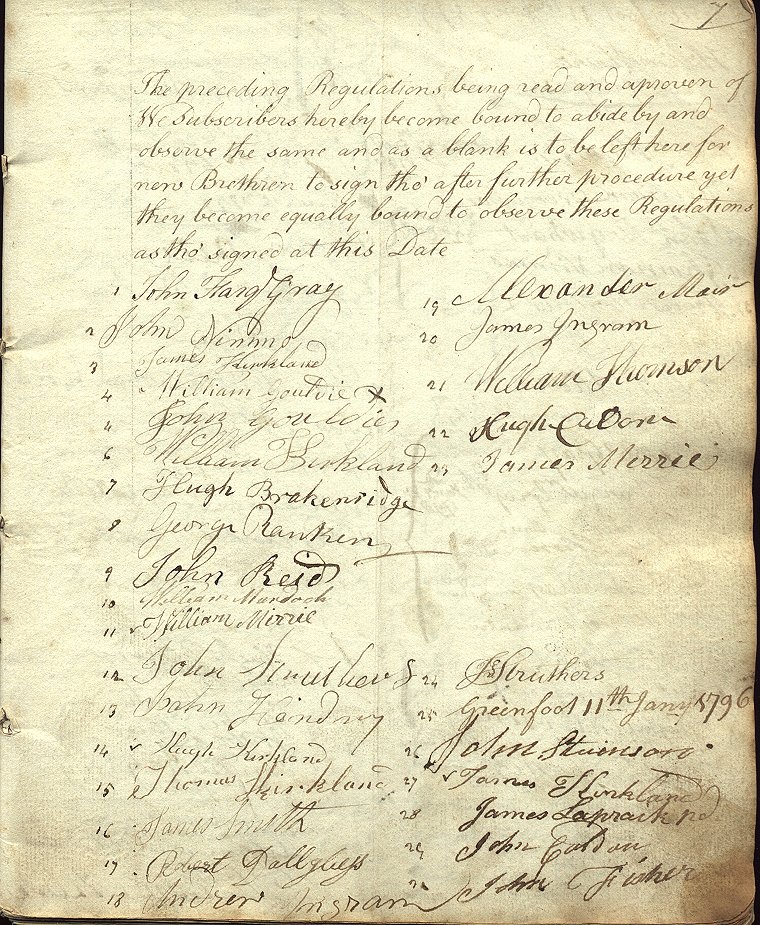 7
The preceding Regulations being read and aproven of
We Subscribers hereby become bound to abide by and
observe the same and as a blank is to be left here for
new Brethren to sign tho' after further procedure yet
they become equally bound to observe these Regulations
as tho' signed at this Date
1 John Farqr Gray
2 John Nimmo
3 James Kirkland
4 William Gouldie x
4 John Gouldie
6 William Kirkland
7 Hugh Brakenridge
8 George Ranken
9 John Reid
10 William Murdoch
11 William Mirrie
12 John Struthers
13 John Hendry
14 Hugh Kirkland
15 Thomas Kirkland
16 James Smith
17 Robert
18 Andrew Ingram
19 Alexander Mair
20 James Ingram
21 William Thomson
22 Hugh
23 James Merrie
24 Js Struthers
25 Greenfoot 11th Jany 1796
26 John
27 James Kirkland
28 James
29 John
John Fisher